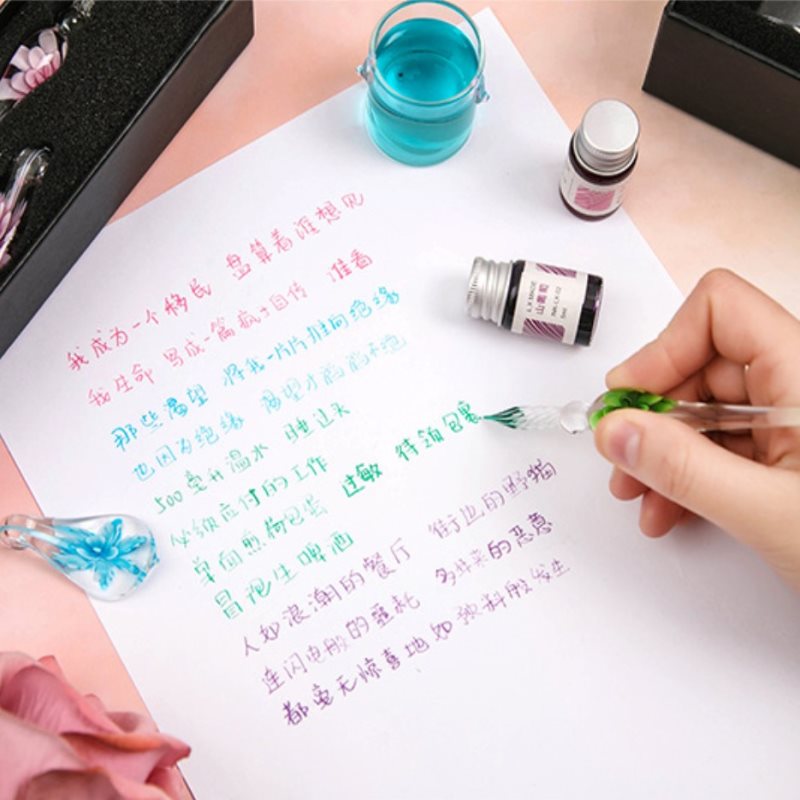 我成为一个移民 盘算着谁想见
我生命 写成一篇疯子自传 谁看
那些渴望 将我一片片推向绝缘
也因为绝缘 渴望才不绝
500毫升温水 睡过头
必须应付的工作 过敏 待领包裹
单面煎荷包蛋
冒泡生啤酒
人如浪潮的餐厅 街边的野猫
连闪电般的噩耗 多年来的恶意
都毫无惊喜地如预料般发生
山葡萄
5ml